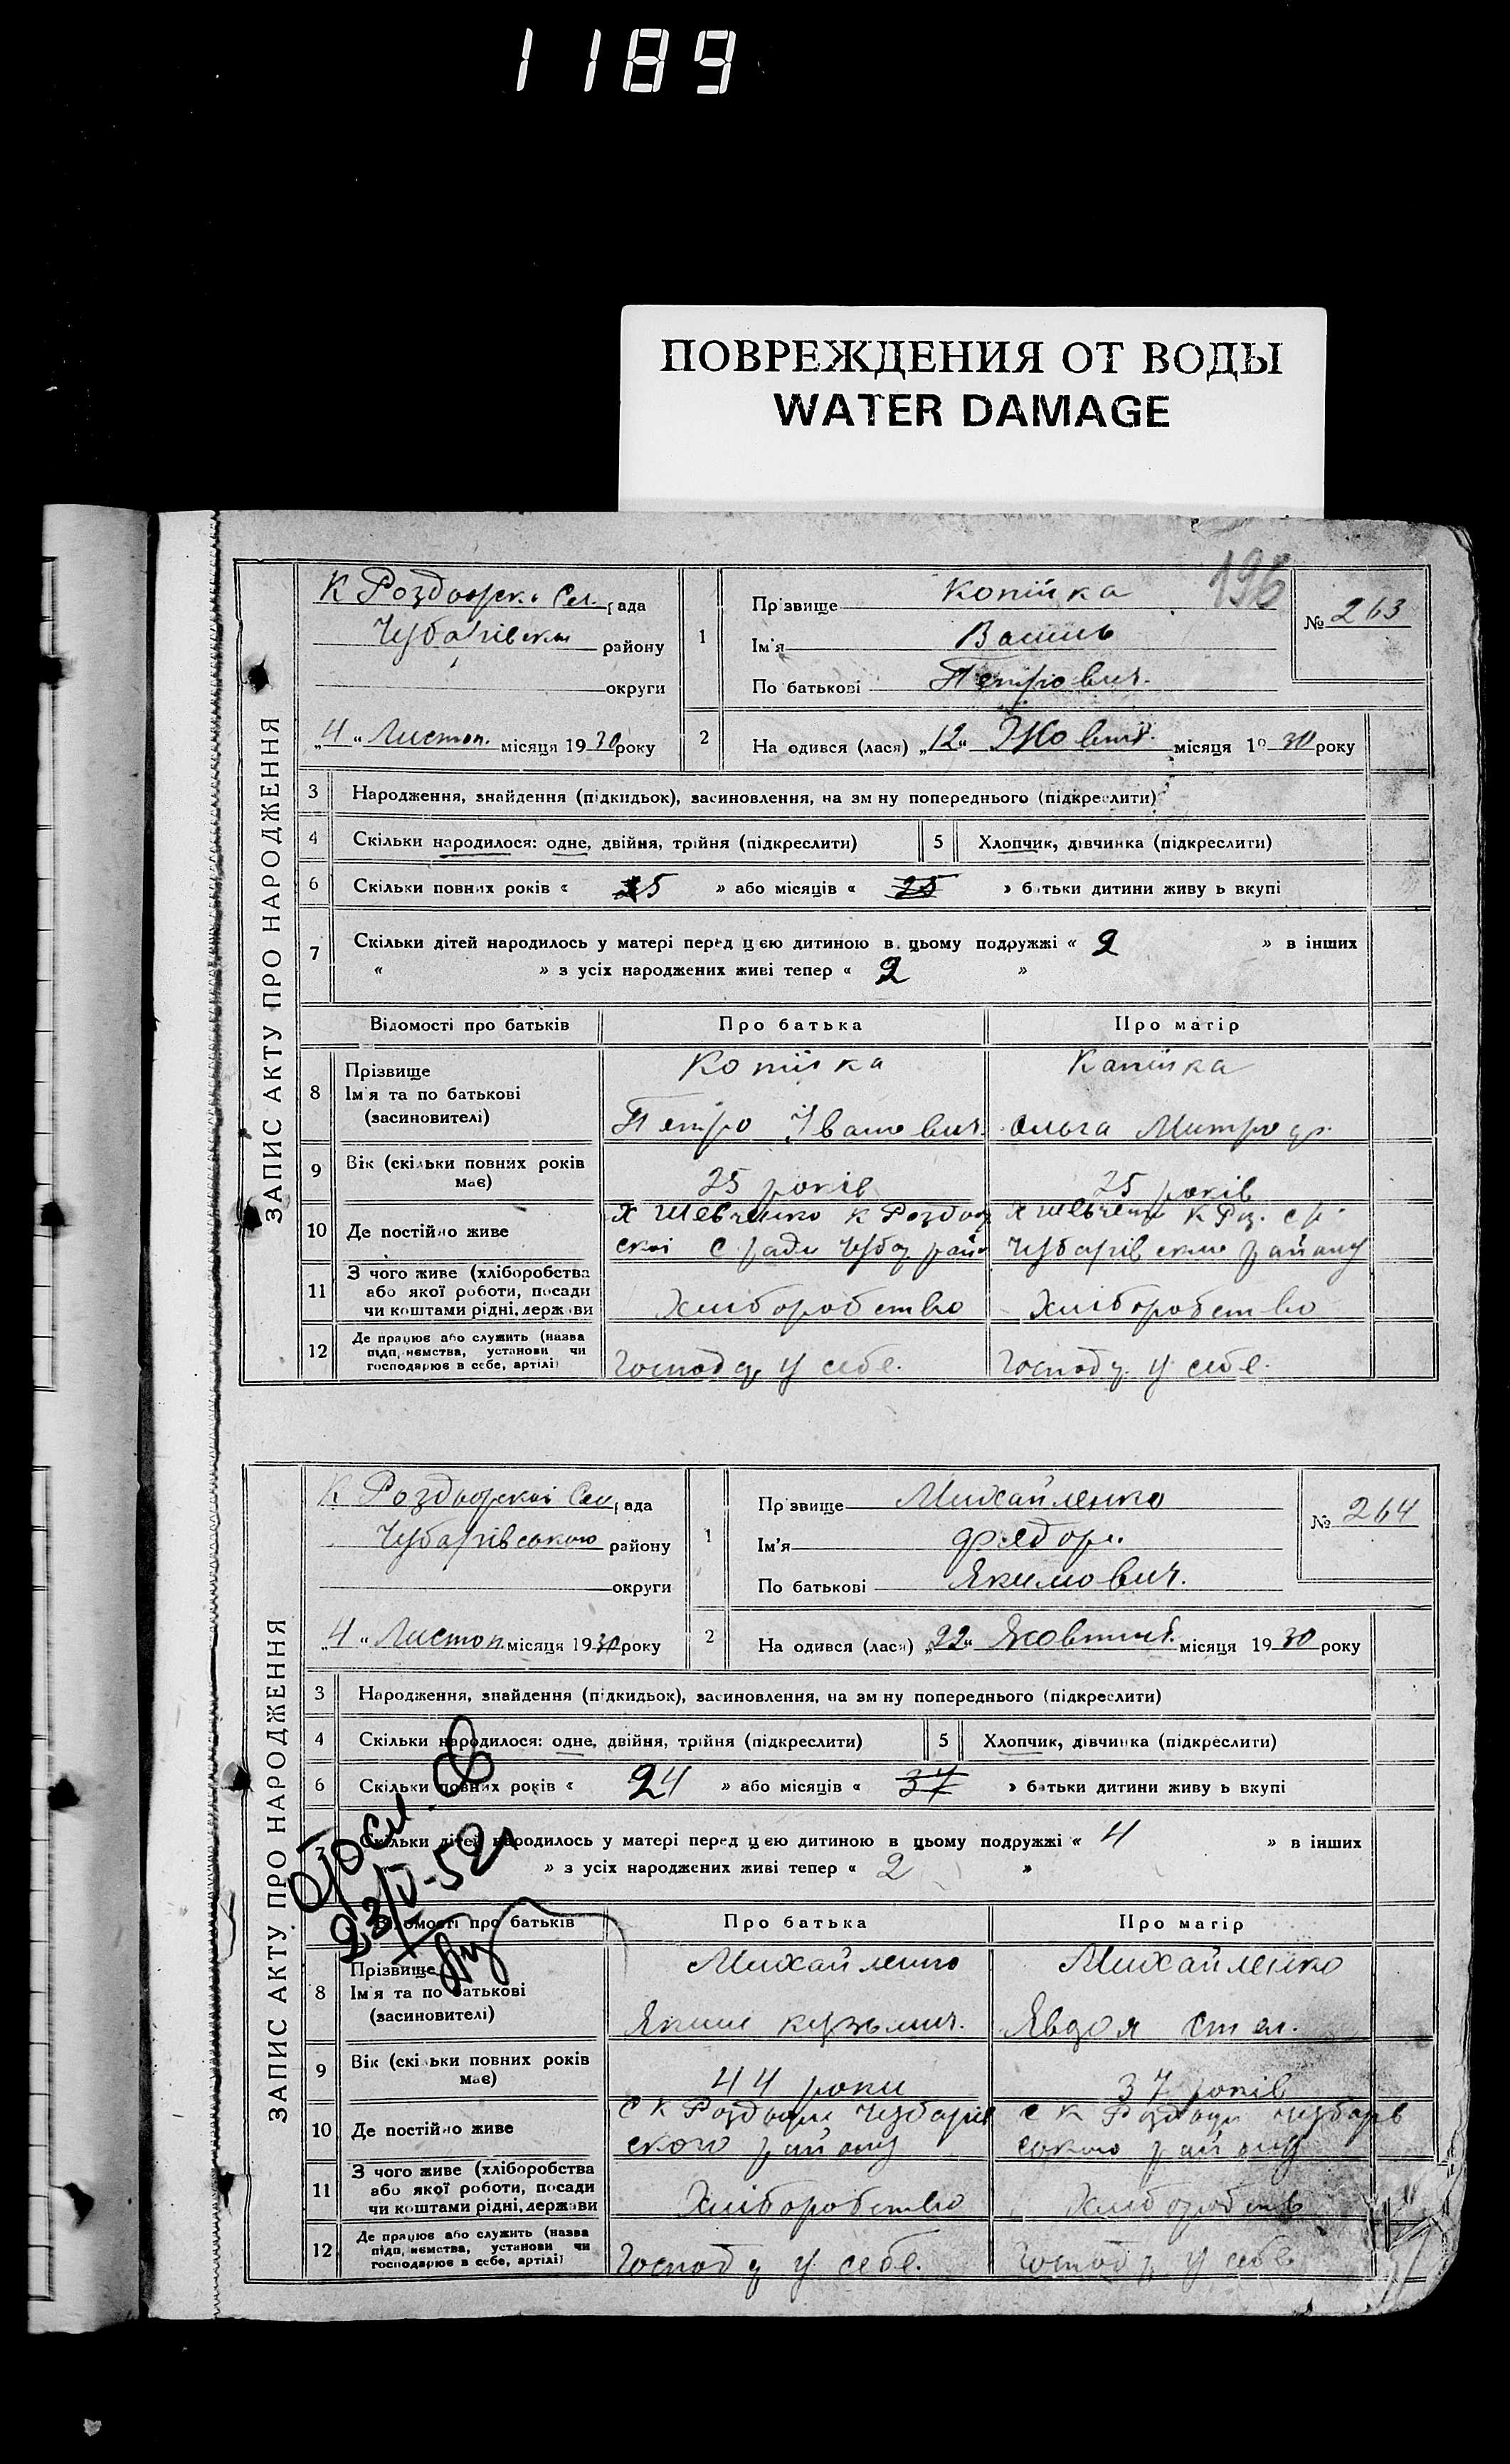 1189
ПОВРЕЖДЕНИЯ ОТ ВОДЫ
WATER DAMAGE
196
ЗАПИС АКТУ ПРО НАРОДЖЕННЯ
К Роздорск. Сел. рада
Чубарівськ району
округи
„4“ Листоп. місяця 1930 року
1
Прізвище Копійка
Ім'я Василь
По батькові Петрович.
№ 263
2 На одився (лася) „12“ Жовтня місяця 1930 року
3 Народження, знайдення (підкидьок), засиновлення, на зм ну попереднього (підкреслити)
4 Скільки народилося: одне, двійня, трійня (підкреслити)
5 Хлопчик, дівчинка (підкреслити)
6 Скільки повних років « 5 » або місяців « 25 » батьки дитини живу ь вкупі
7 Скільки дітей народилось у матері перед цією дитиною в цьому подружжі « 2 » в інших
« » з усіх народжених живі тепер « 2 »
Відомості про батьків Про батька Про матір
8 Прізвище
Ім'я та по батькові
(засиновителі)
Копійка
Петро Іванович
Капійка
Ольга Митроф.
9 Вік (скільки повних років має)
25 років
25 років
10 Де постійно живе
Х Шевченко К Роздор
скої С ради Чубар рай
Х Шевченко К Роз. с р
Чубарівськ району
11 З чого живе (хліборобства
або якої роботи, посади
чи коштами рідні, держави
Хліборобство
Хліборобство
12 Де працює або служить (назва
підп, иємства, установи чи
господарює в себе, артілі)
Господ у себе.
Господ у себе.
ЗАПИС АКТУ ПРО НАРОДЖЕННЯ
К Роздорскої Сел рада
Чубарівського району
округи
„4“ Листоп місяця 1930 року
1
Прізвище Михайленко
Ім'я Федор.
По батькові Якимович.
№ 264
2 На одився (лася) „22“ Жовтня місяця 1930 року
3 Народження, знайдення (підкидьок), засиновлення, на зм ну попереднього (підкреслити)
4 Скільки народилося: одне, двійня, трійня (підкреслити)
5 Хлопчик, дівчинка (підкреслити)
6 Скільки повних років « 24 » або місяців « 37 » батьки дитини живу ь вкупі
Скільки дітей народилось у матері перед цією дитиною в цьому подружжі « 4 » в інших
» з усіх народжених живі тепер « 2 »
23/V-52
Відомості про батьків Про батька Про матір
8 Прізвище
Ім'я та по батькові
(засиновителі)
Михайленко
Яким Кузьмич.
Михайленко
Явдоя Степ.
9 Вік (скільки повних років має)
44 роки
37 років
10 Де постійно живе
С К Роздори Чубарів
ского району
с К Роздори Чубарів
ского району
11 З чого живе (хліборобства
або якої роботи, посади
чи коштами рідні, держави
Хліборобство
Хліборобств
12 Де працює або служить (назва
підп, иємства, установи чи
господарює в себе, артілі)
Господ у себе.
Господ у себе